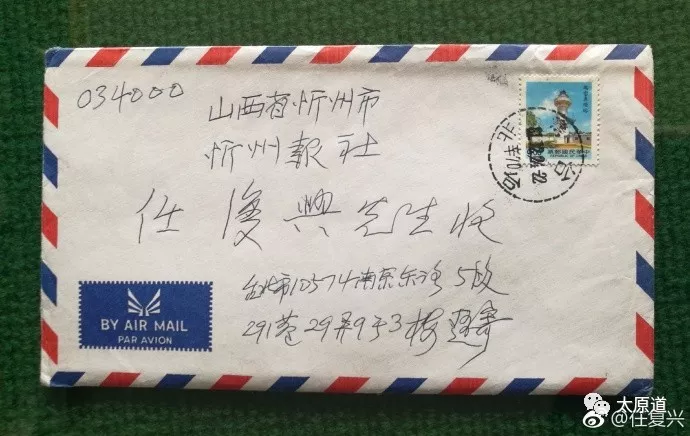 034000
山西省忻州市
忻州報社
任復興先生收
台北市10574南京东路5段
291巷29弄9号3楼
BY AIR MAIL
PAR AVION
中華民國郵票
REPUBLIC OF CHINA
太原道
@任复兴